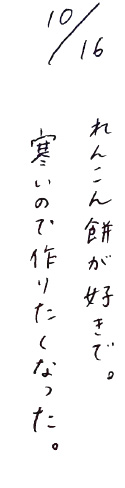 10/16
れんこん餅が好きで。
寒いので作りたくなった。